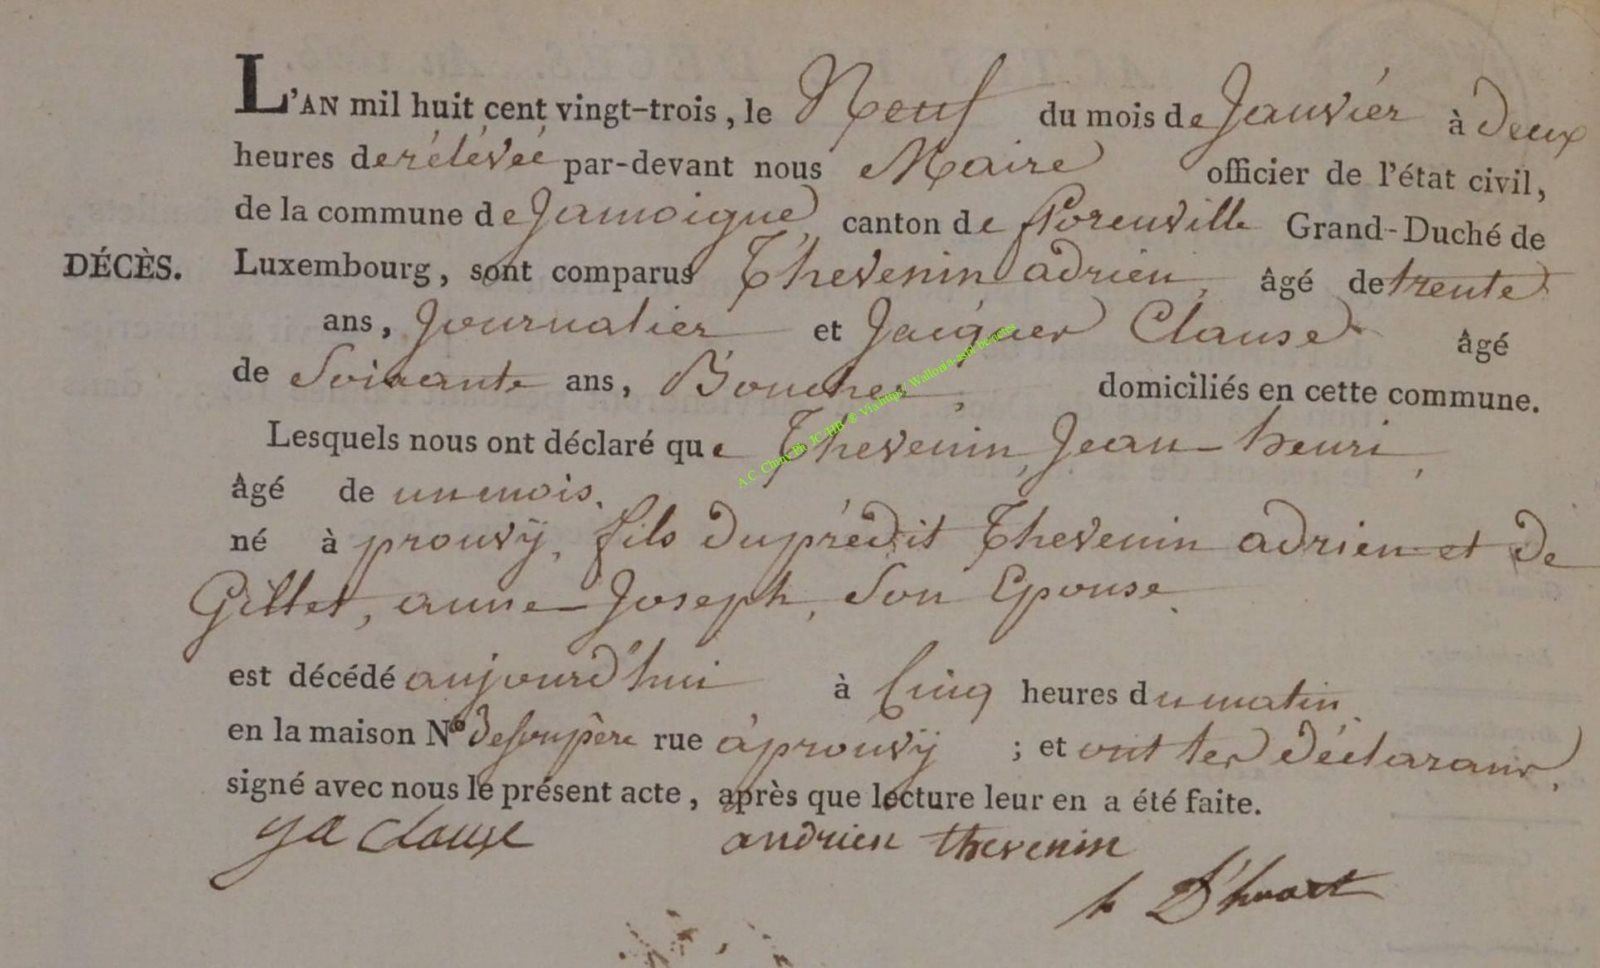 L'AN mil huit cent vingt-trois, le Neuf du mois de Janviér à deux
heures de rélévéé par-devant nous Maire officier de l'état civil,
de la commune de Jamoigne, canton de florenville Grand-Duché de
DÉCÈS. Luxembourg, sont comparus Thevenin adrien, âgé de trente
ans, Journalier et Jacques Clause âgé
de Soixante ans, Boucher, domiciliés en cette commune.
Lesquels nous ont déclaré que Thevenin, Jean-henri,
âgé de un mois.
né à prouvÿ, fils du prédit Thevenin adrien et de
Gillet, anne-Joseph, Son Epouse.
est décédé aujourd'hui à Cinq heures du matin.
en la maison No de son père rue à prouvÿ ; et ont les déclarans,
signé avec nous le présent acte, après que lecture leur en a été faite.
clause andrien thevenin
h D'huart
A.C. Chiny JC/HB ® Via https/ Wallonia asbl be/actes